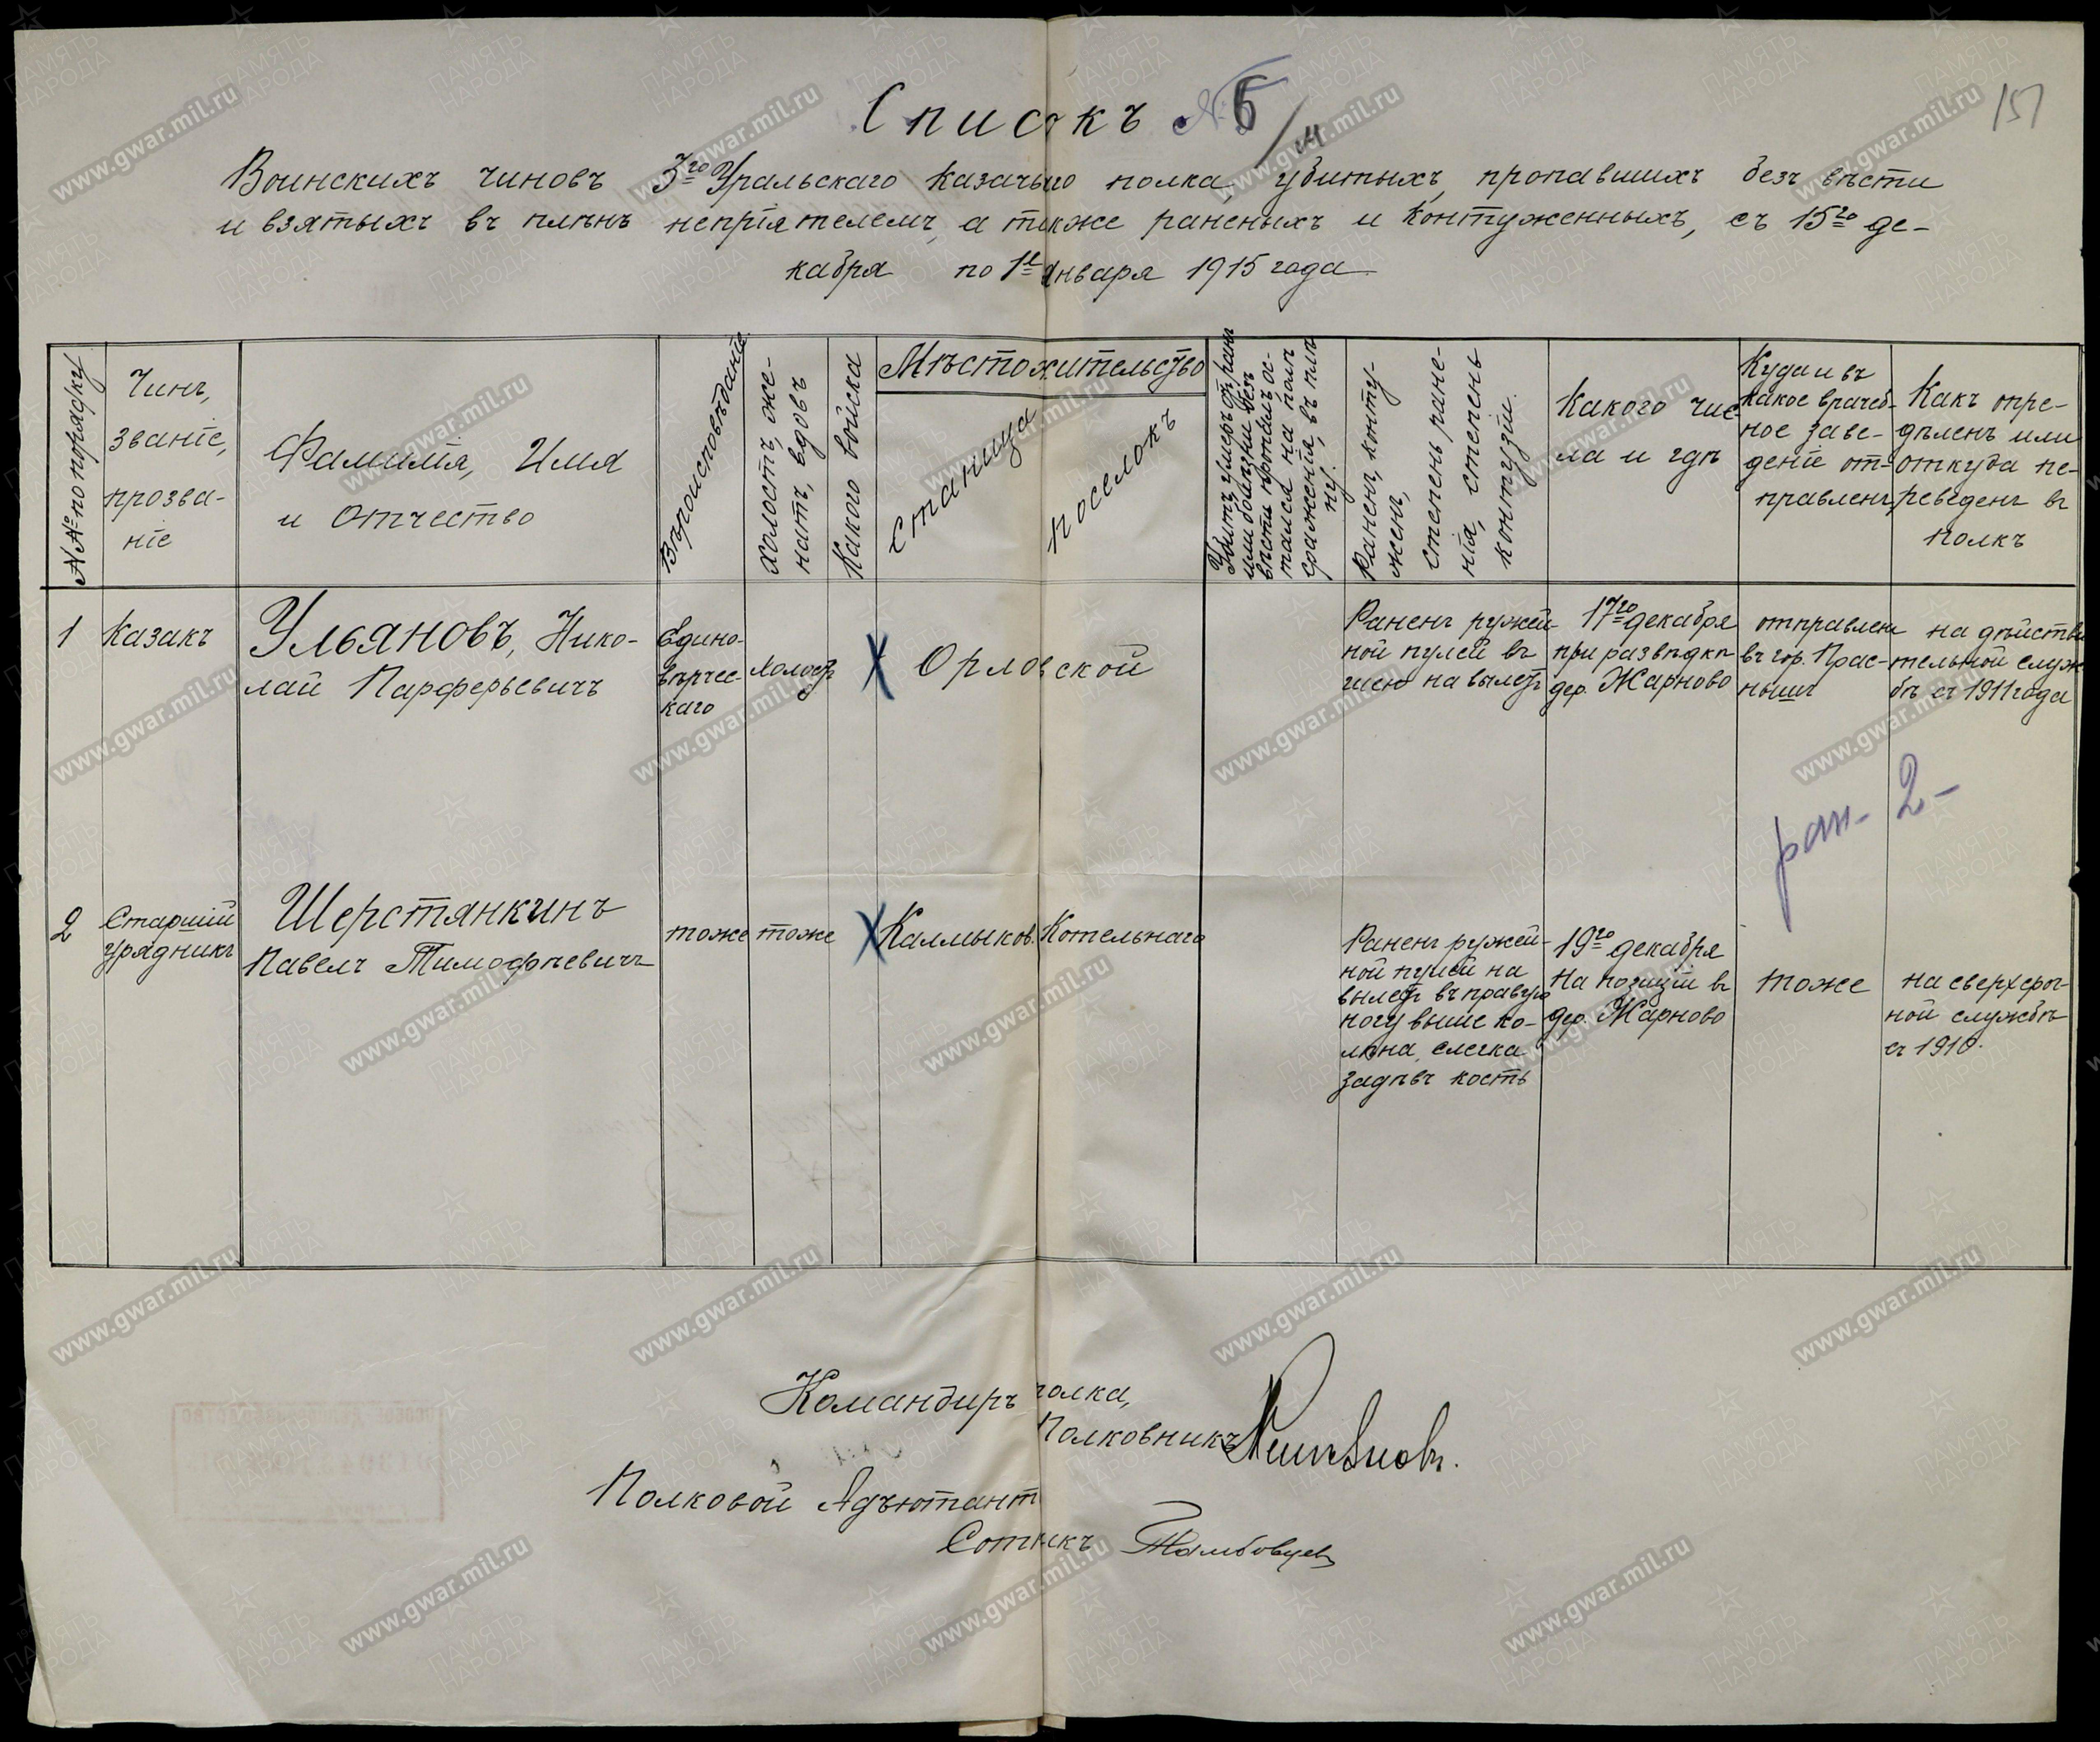 Списокъ № 6/м
151
Воинскихъ чиновъ 3го Уральскаго казачьяго полка, убитыхъ, пропавшихъ безъ вѣсти
и взятыхъ въ плѣнъ непріятелемъ, а также раненыхъ и контуженныхъ, съ 15го де-
кабря по 1е января 1915 года
№№ по порядку
Чинъ,
званіе,
прозва-
ніе
Фамилія, Имя
и Отчество
Вѣроисповѣданіе
Холостъ, же-
натъ, вдовъ
Какого войска
Мѣстожительство
Станица
Поселокъ
Убитъ, умеръ отъ ранъ
или болѣзни, безъ
вѣсти пропалъ, ос-
тался на полѣ
сраженія, въ плѣ-
ну.
Раненъ, конту-
женъ,
степень ране-
нія, степень
контузіи.
Какого чис
ла и гдѣ
Куда и въ
какое врачеб-
ное заве-
деніе от-
правленъ
Какъ опре-
дѣленъ или
откуда пе-
реведенъ въ
полкъ
1
Казакъ
Ульяновъ, Нико-
лай Парферьевичъ
Едино-
вѣрчес-
каго
холостъ
Орловской
Раненъ ружей-
ной пулей въ
шею на вылетъ
17го декабря
при развѣдкѣ
дер. Жарново
отправленъ
въ гор. Прас-
нышъ
на дѣйстви
тельной служ
бѣ съ 1911 года
ран- 2-
2
Старшій
урядникъ
Шерстянкинъ
Павелъ Тимофѣевичъ
тоже
тоже
Калмыков.
Котельнаго
Раненъ ружей-
ной пулей на
вылетъ въ правую
ногу выше ко-
лѣна, слегка
задѣвъ кость
19го декабря
на позиціи въ
дер. Жарново
тоже
на сверхсроч-
ной службѣ
съ 1910.
Командиръ полка,
Полковникъ
Полковой Адъютантъ
Сотникъ Тамбовцевъ
www.gwar.mil.ru
ПАМЯТЬ
НАРОДА